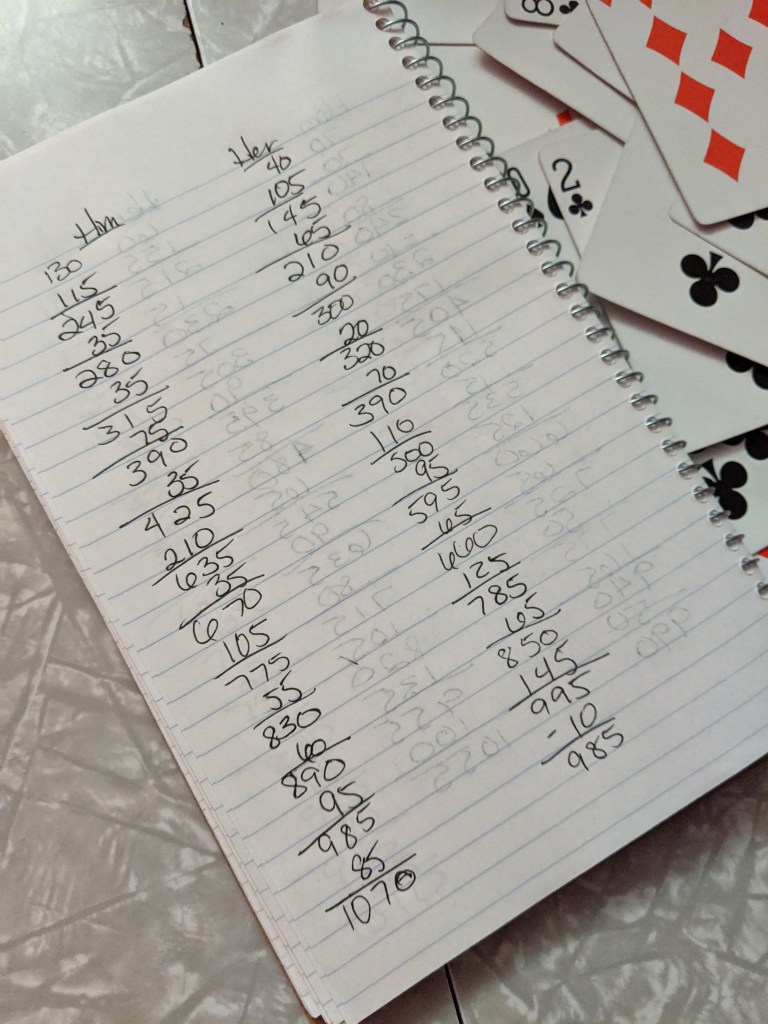 Him
130
115
245
35
280
35
315
75
390
35
425
210
635
35
670
105
775
55
830
60
890
95
985
85
1070
Her
40
105
145
65
210
90
300
20
320
70
390
110
500
95
595
65
660
125
785
65
850
145
995
-10
985
8
2